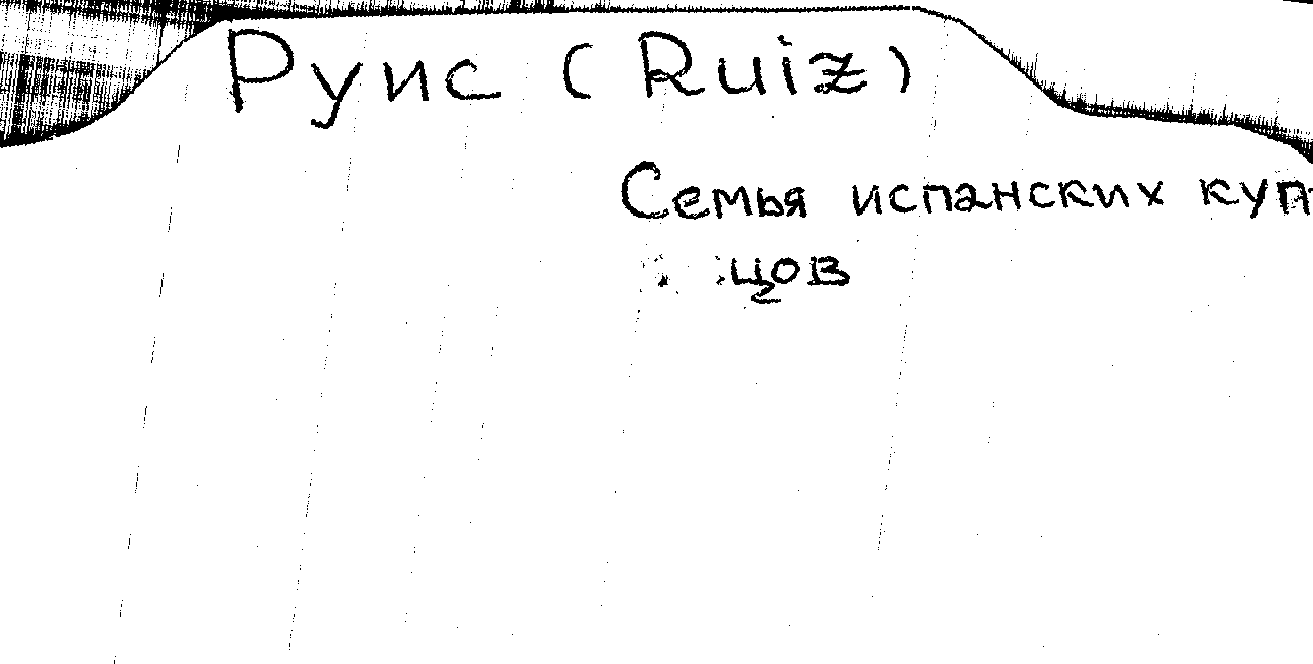 Руис (Ruiz)
Семья испанских куп-
цов